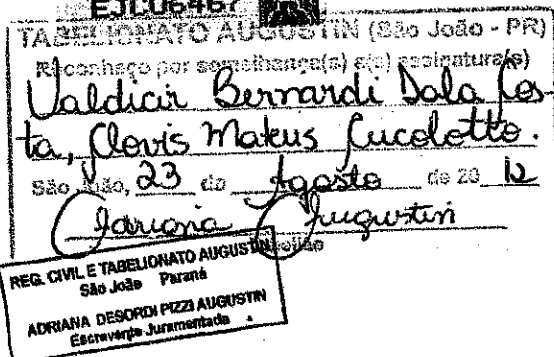 EJCU6467
TABELIONATO AUGUSTIN (São João - PR)
Reconheço por semelhança(s) a(s) assinatura(s)
Valdicir Bernardi Dala Cos-
ta, Clovis Mateus Cucolotto.
São João, 23 de Agosto de 20 12
Adriana Augustin
REG. CIVIL E TABELIONATO AUGUSTIN
São João Paraná
ADRIANA DESORDI PIZZI AUGUSTIN
Escrevente Juramentada